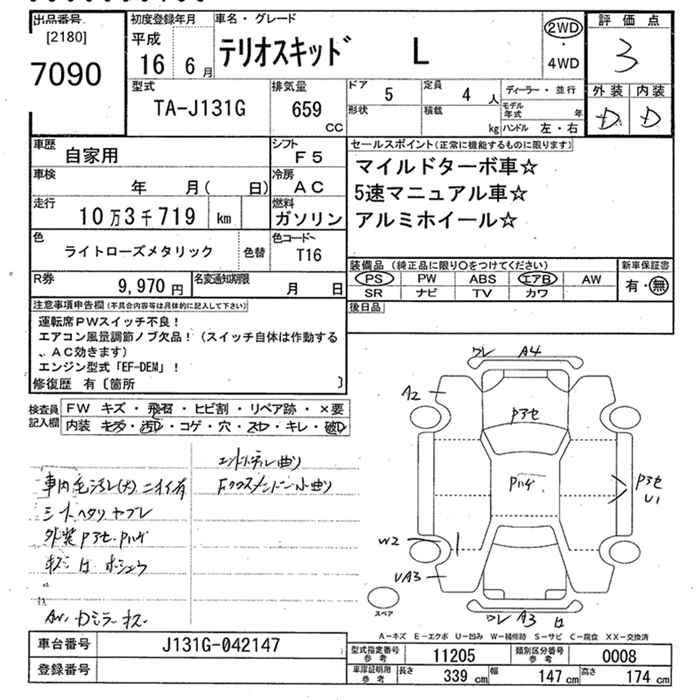 出品番号
[2180]
7090
初度登録年月
平成
16 6月
車名・グレード
テリオスキッド L
2WD
・
4WD
評価点
3
外装 内装
D D
型式
TA-J131G
排気量
659
CC
ドア
5
定員
4 人
形状
積載
kg
ディーラー・並行
モデル年式 年
ハンドル 左・右
車歴
自家用
シフト
F5
車検
年 月( 日)
冷房
AC
走行
10万3千719 km
燃料
ガソリン
色
ライトローズメタリック
色替
色コード
T16
R券
9,970円
名変通知期限
月 日
セールスポイント(正常に機能するものに限ります)
マイルドターボ車☆
5速マニュアル車☆
アルミホイール☆
装備品(純正品に限り○をつけてください)
PS PW ABS エアB AW
SR ナビ TV カワ
新車保証書
有・無
後日品
注意事項申告欄(不具合内容等は具体的に記入して下さい)
運転席PWスイッチ不良!
エアコン風量調節ノブ欠品!(スイッチ自体は作動する
、AC効きます)
エンジン型式「EF-DEM」!
修復歴 有〔箇所 〕
検査員記入欄
FW キズ・飛石・ヒビ割・リペア跡・×要
内装 キズ・汚れ・コゲ・穴・スレ・キレ・破れ
車内毛汚レ(大)ニオイ有
シートヘタリ ヤブレ
外装Pヨセ・Pハゲ
ワレ A4
A2
Pヨセ
Pハゲ
Pヨセ
U1
W2
UA3
ワレ A3
スペア
A−キズ E−エクボ U−凹み W−補修跡 S−サビ C−腐食 XX−交換済
車台番号
J131G-042147
登録番号
型式指定番号参考
11205
類別区分番号参考
0008
車庫証明用参考
長さ 339cm 幅 147cm 高さ 174cm